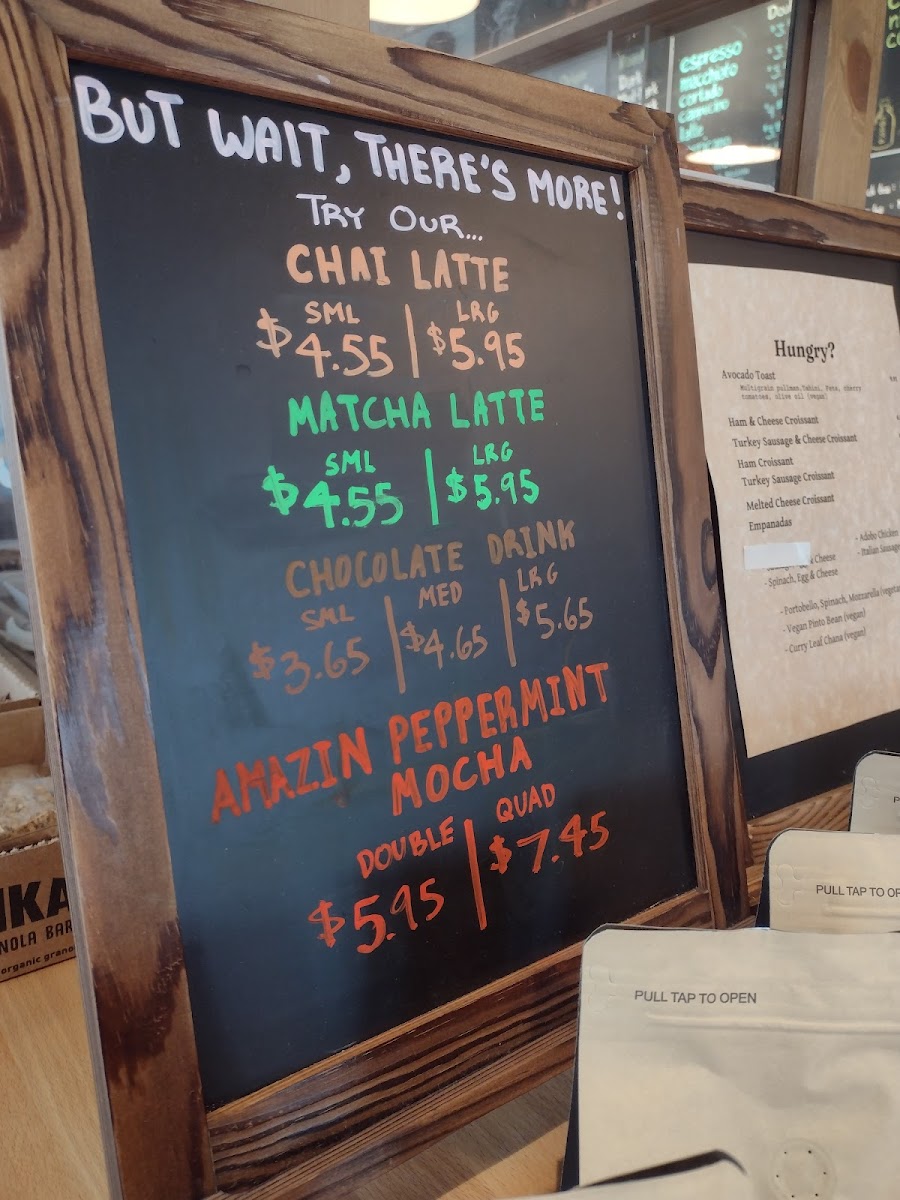 BUT WAIT, THERE'S MORE!
TRY OUR...
CHAI LATTE
SML LRG
$4.55 | $5.95
MATCHA LATTE
SML LRG
$4.55 | $5.95
CHOCOLATE DRINK
SML MED LRG
$3.65 | $4.65 | $5.65
AMAZIN PEPPERMINT
MOCHA
DOUBLE QUAD
$5.95 | $7.45
espresso
macchiato
cortado
Hungry?
Avocado Toast
Multigrain pullman, Tahini, Feta, cherry
tomatoes, olive oil (vegan)
Ham & Cheese Croissant
Turkey Sausage & Cheese Croissant
Ham Croissant
Turkey Sausage Croissant
Melted Cheese Croissant
Empanadas
- Adobo Chicken
- Italian Sausage
& Cheese
- Spinach, Egg & Cheese
- Portobello, Spinach, Mozzarella
- Vegan Pinto Bean (vegan)
- Curry Leaf Chana (vegan)
PULL TAP TO
PULL TAP TO OPEN
NOLA BAR
organic